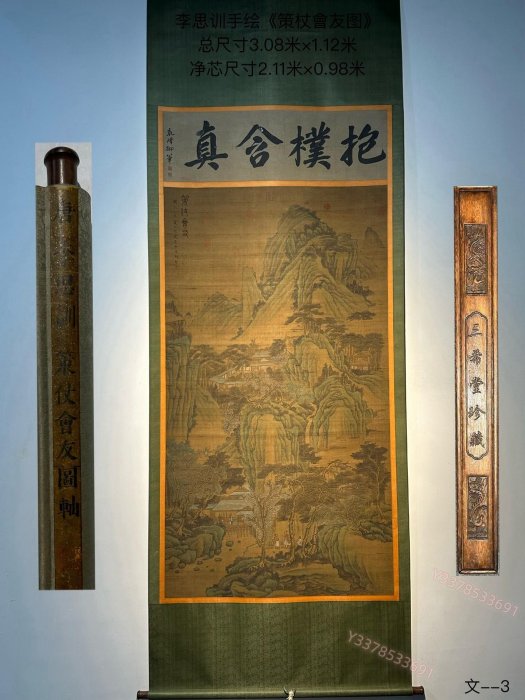 李思训手绘《策杖會友图》
总尺寸3.08米×1.12米
净芯尺寸2.11米×0.98米
抱樸含真
策杖會友
策杖會友圖軸
三希堂珍藏
Y3378533691
Y3378533691
文--3